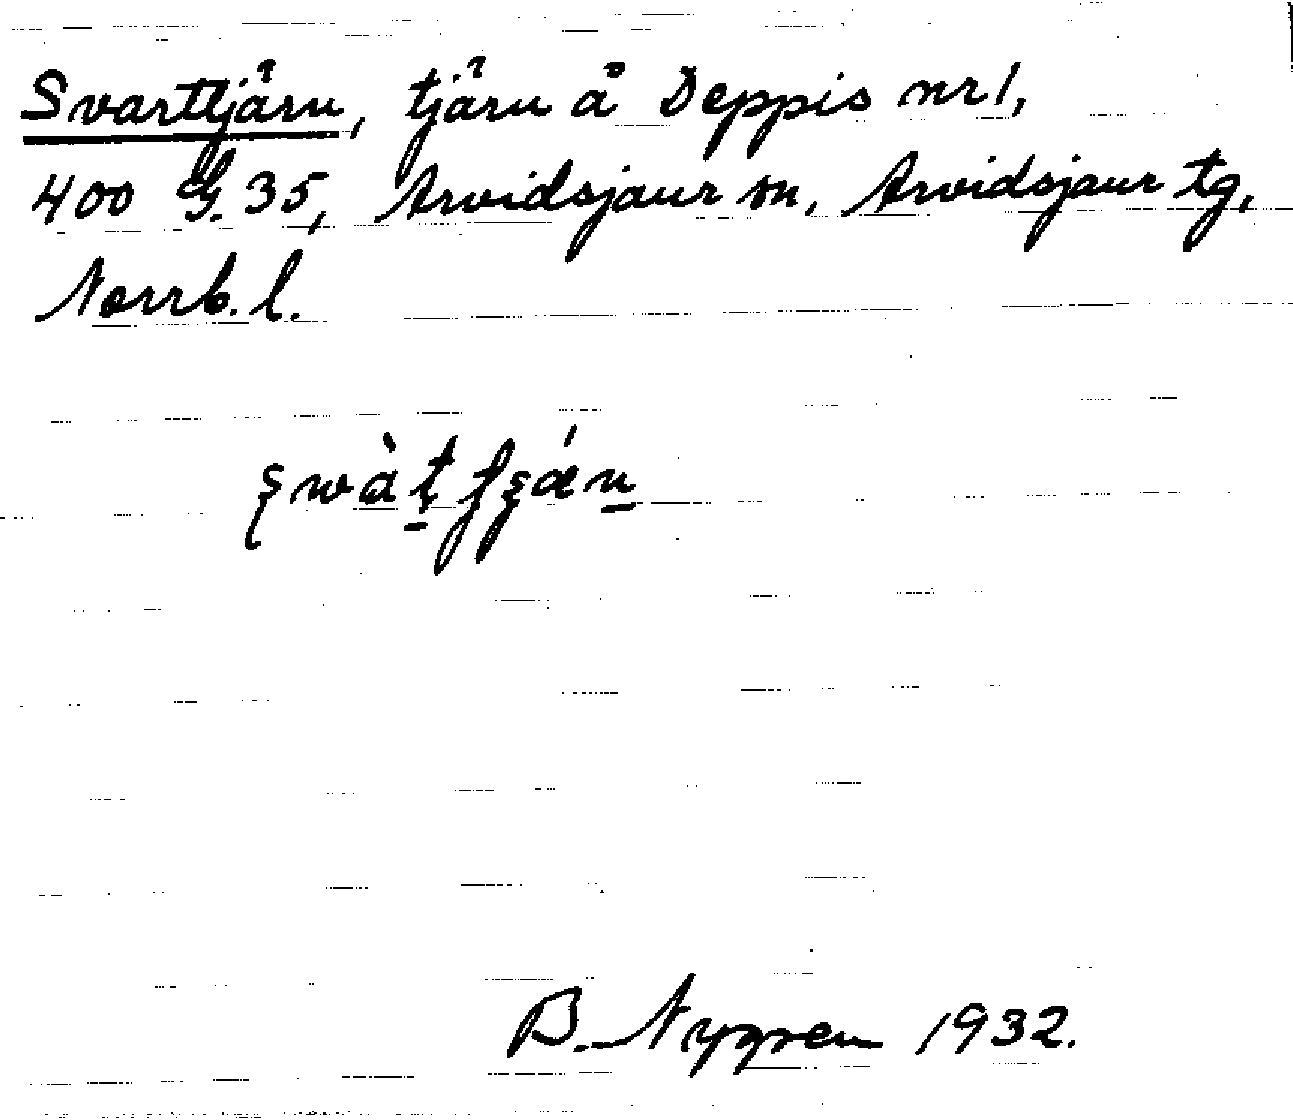 Svarttjärn, tjärn å Deppis nr 1,
400 G. 35, Arvidsjaur sn, Arvidsjaur tg,
Norrb. l.
B. Nygren 1932.